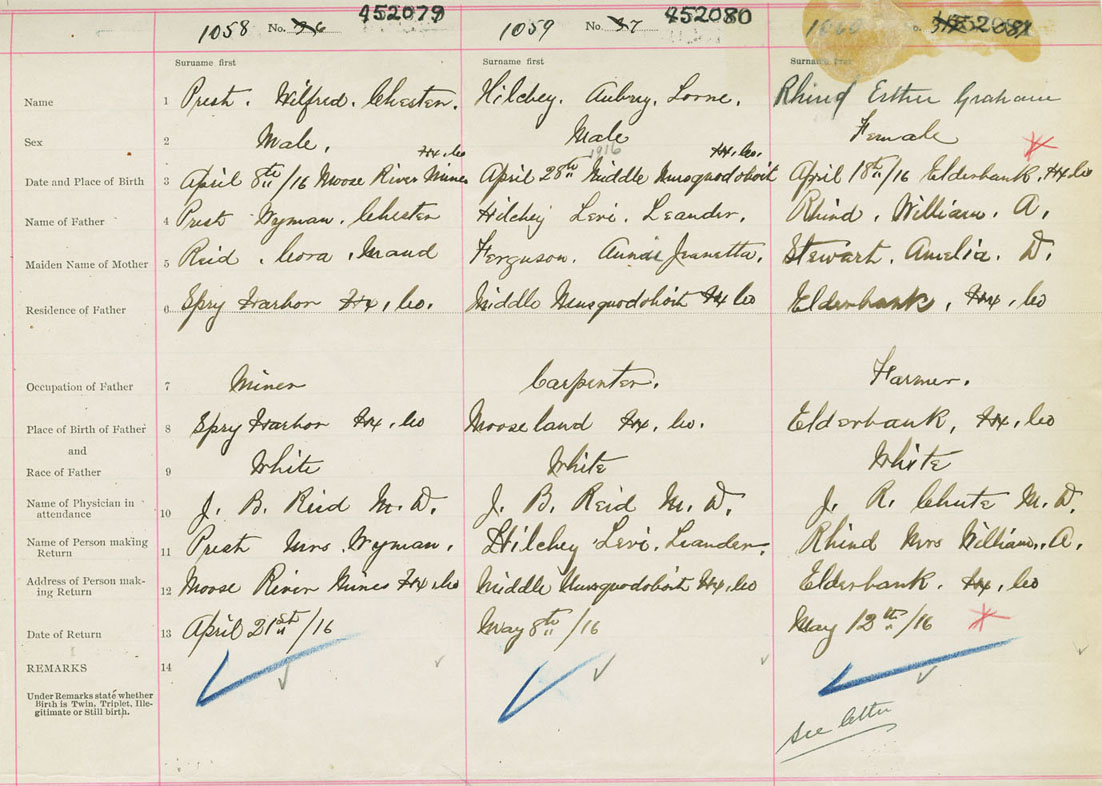 452079 452080 452081
1058 No. 36 1059 No. 37 1060 No.
Surname first Surname first Surname first
Name 1 Prest. Wilfred. Chester. Hilchey. Aubrey. Lorne. Rhind Esther Graham
Sex 2 Male. Male Female
Hx. Co 1916 Hx. Co.
Date and Place of Birth 3 April 8th/16 Moose River Mines April 28th Middle Musquodoboit April 18th/16 Elderbank. Hx Co
Name of Father 4 Prest Wyman. Chester Hilchey Levi. Leander. Rhind. William. A.
Maiden Name of Mother 5 Reid. Cora. Maud Ferguson. Annie Jeanetta. Stewart. Amelia. D.
Residence of Father 6 Spry Harbor Hx. Co. Middle Musquodoboit Hx Co Elderbank, Hx. Co
Occupation of Father 7 Miner Carpenter. Farmer.
Place of Birth of Father 8 Spry Harbor Hx. Co Mooseland Hx. Co. Elderbank, Hx. Co
and
Race of Father 9 White White White
Name of Physician in
attendance 10 J. B. Reid M. D. J. B. Reid M. D. J. R. Chute M. D.
Name of Person making
Return 11 Prest Mrs Wyman. Hilchey Levi. Leander. Rhind Mrs William. A.
Address of Person mak-
ing Return 12 Moose River Mines Hx. Co Middle Musquodoboit Hx. Co Elderbank. Hx. Co
Date of Return 13 April 21st/16 May 8th/16 May 12th/16
REMARKS 14
Under Remarks state whether
Birth is Twin, Triplet, Ille-
gitimate or Still birth.
See letter